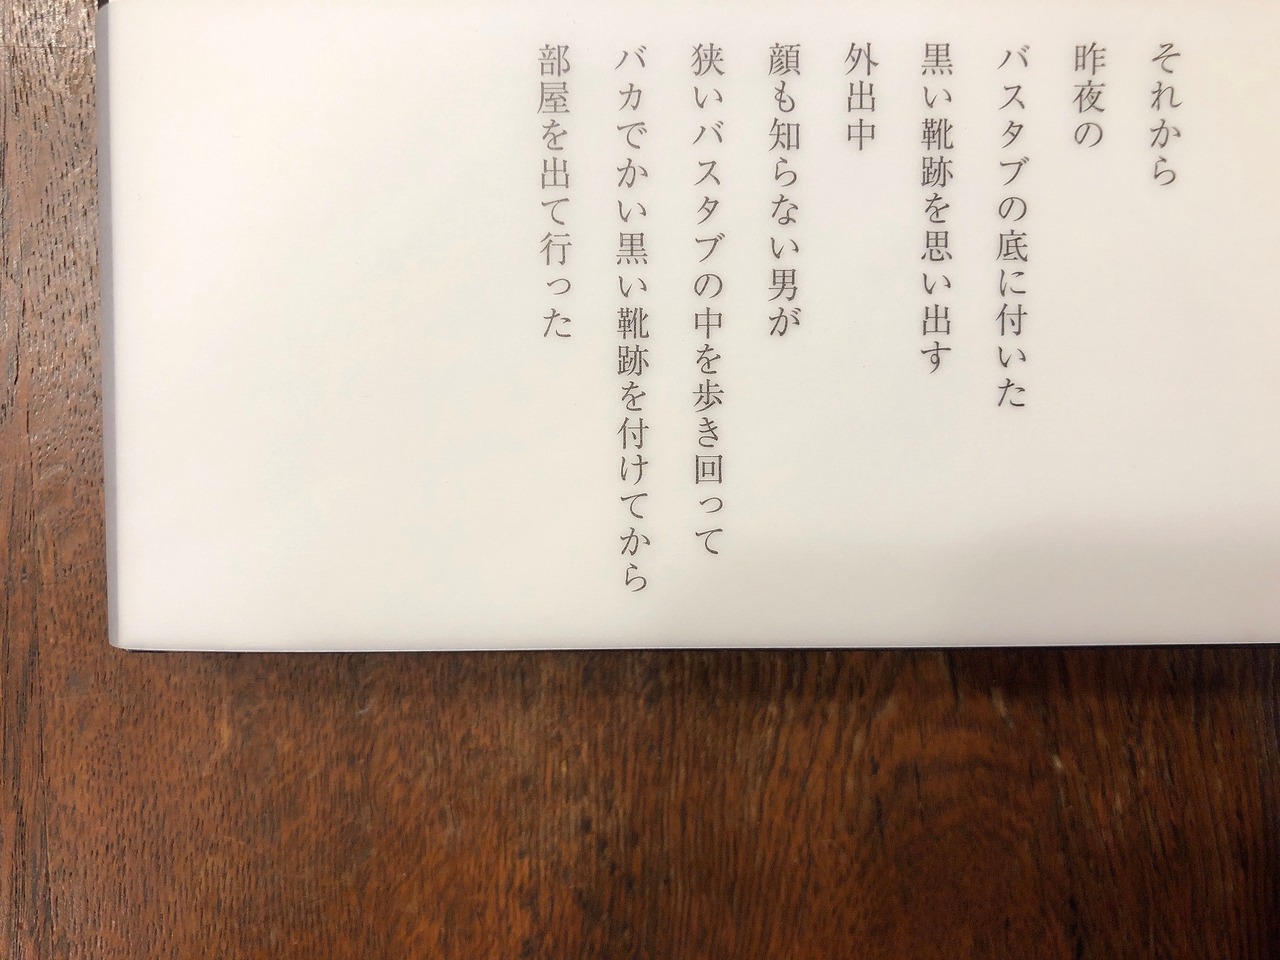 それから
昨夜の
バスタブの底に付いた
黒い靴跡を思い出す
外出中
顔も知らない男が
狭いバスタブの中を歩き回って
バカでかい黒い靴跡を付けてから
部屋を出て行った